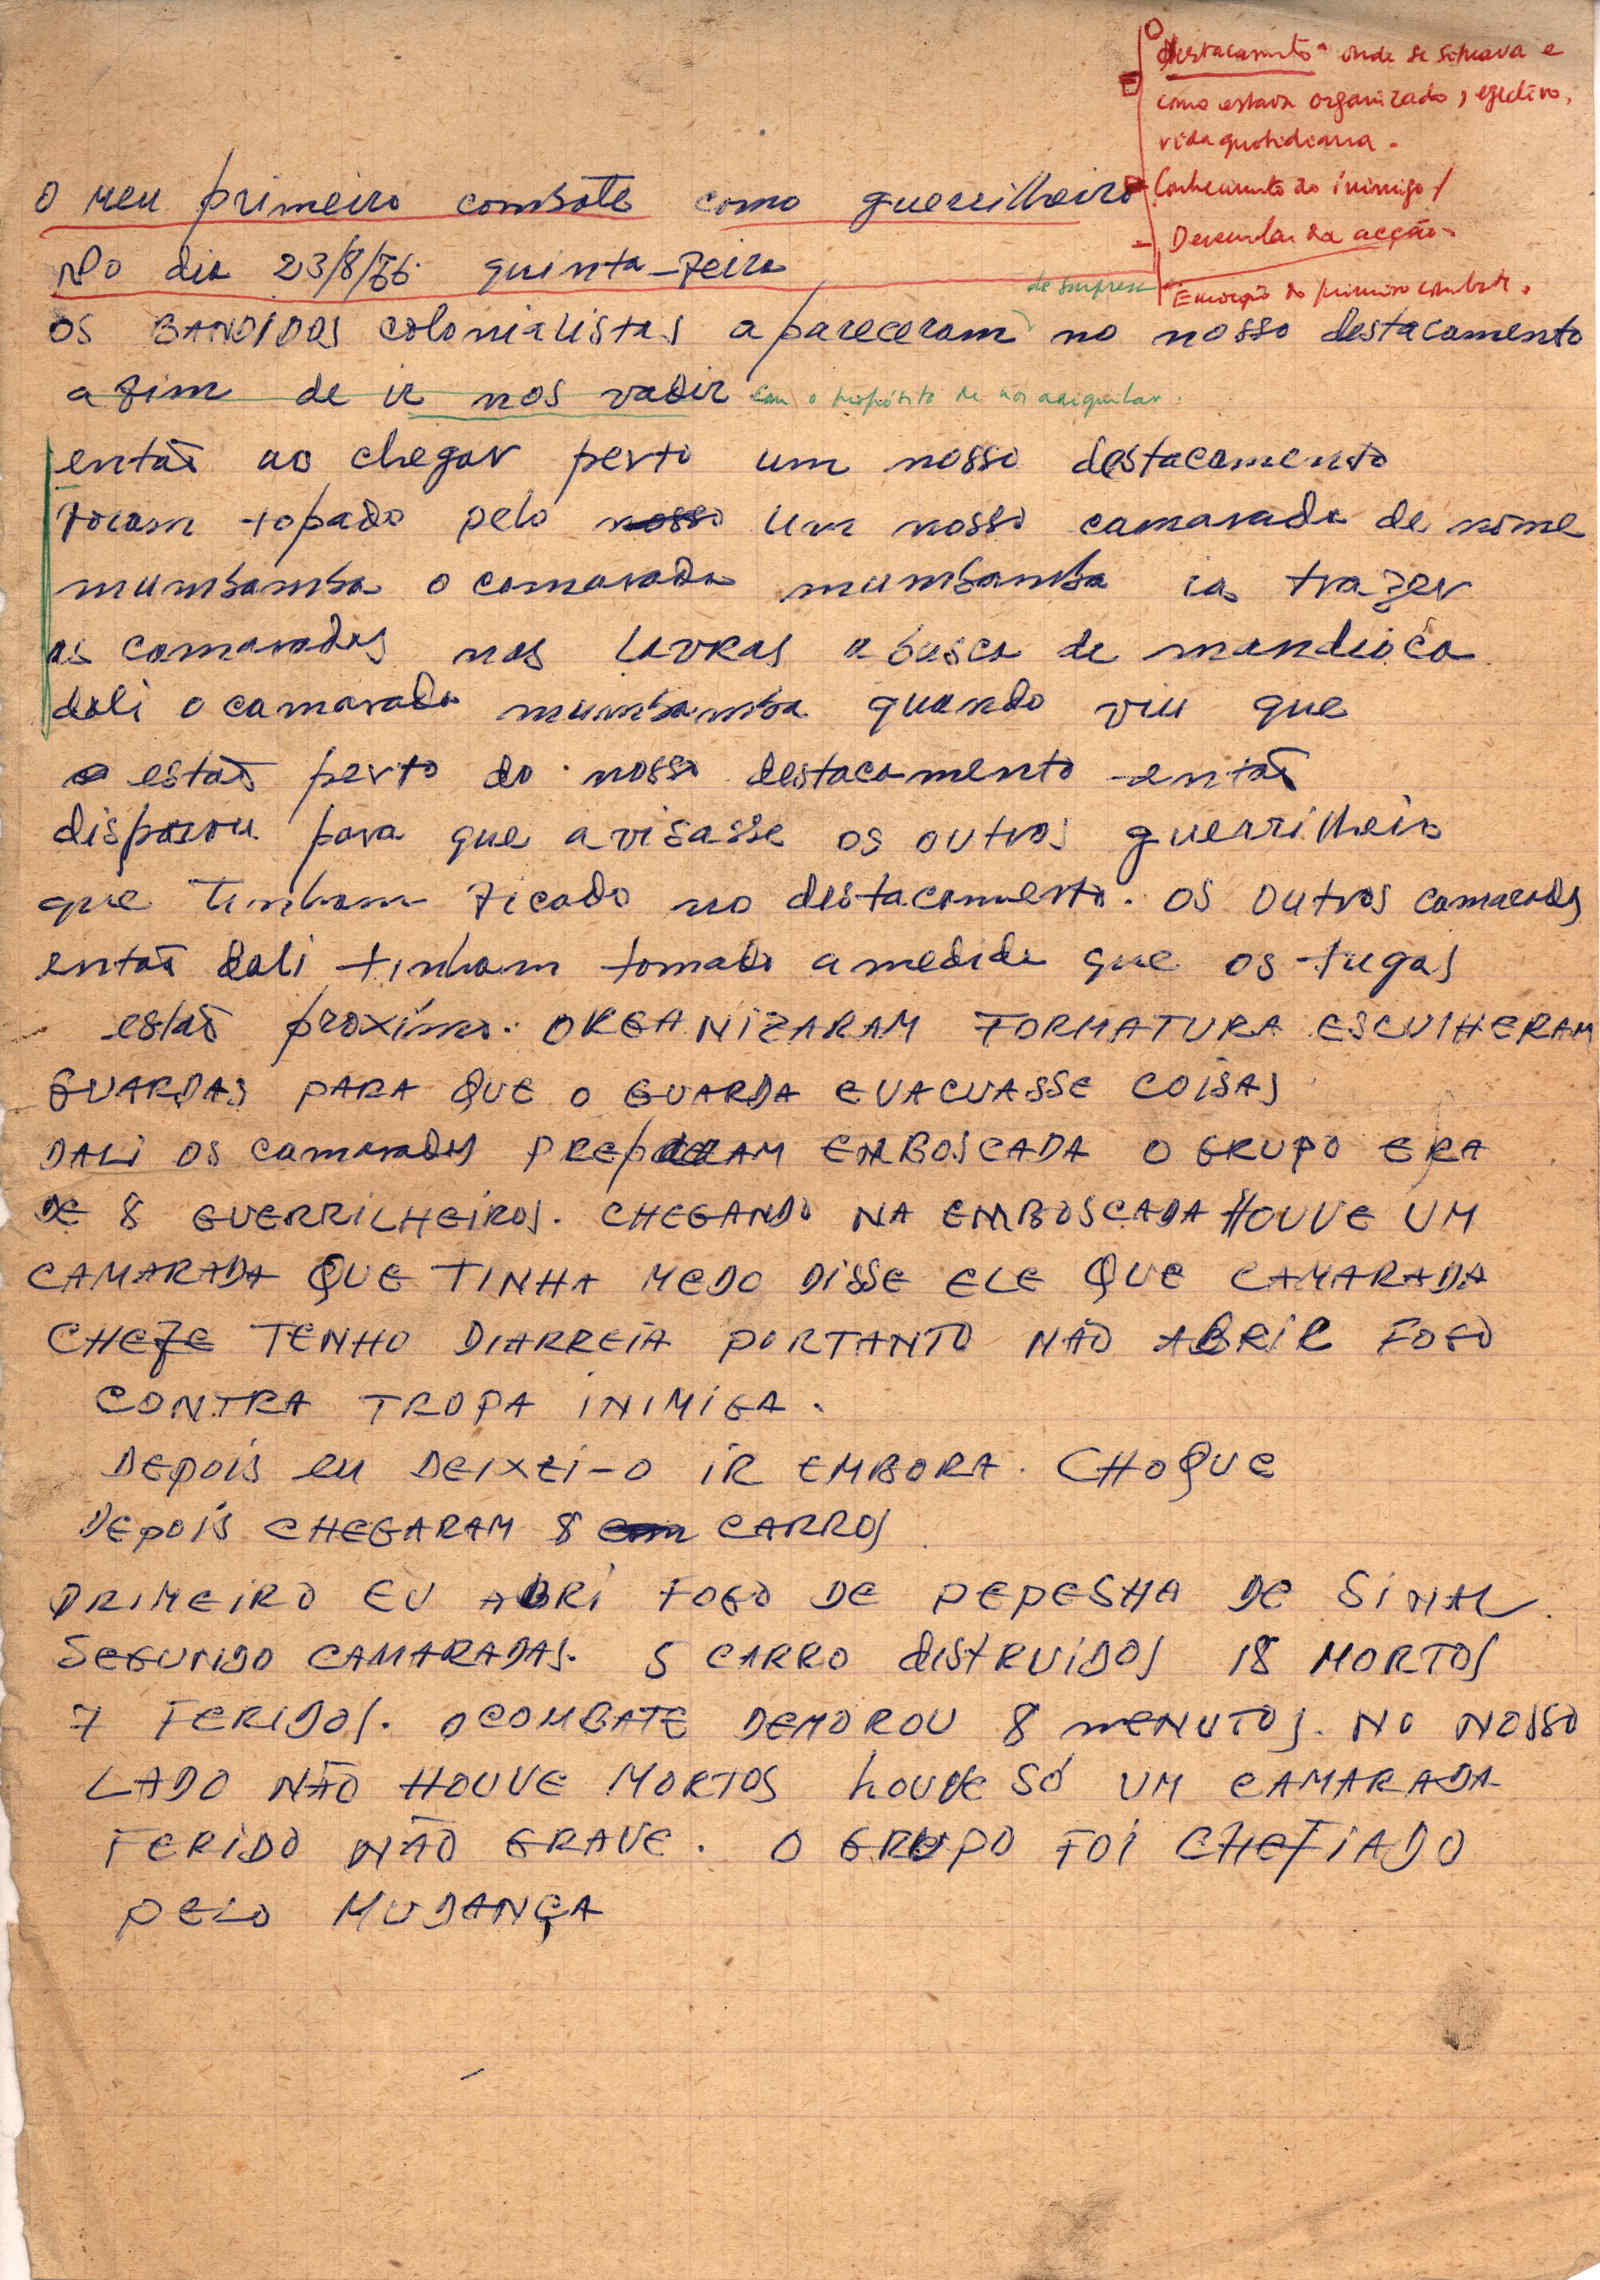 O destacamento onde se situava e
como estava organizado, efectivo,
vida quotidiana.
Conhecimento do inimigo
- Desenrolar da acção.
Emoção do primeiro combate.
O meu primeiro combate como guerrilheiro
No dia 23/8/66 quinta-feira
de surpresa
OS BANDIDOS colonialistas apareceram no nosso destacamento
afim de ir nos vadir com o propósito de nos aniquilar.
então ao chegar perto um nosso destacamento
foram topado pelo nosso um nosso camarada de nome
mumbamba o camarada mumbamba ia trazer
os camaradas nas lavras a busca de mandioca
dali o camarada mumbamba quando viu que
estão perto do nosso destacamento então
disparou para que avisasse os outros guerrilheiro
que tinham ficado no destacamento. os outros camaradas
então dali tinham tomado a medida que os tugas
estão proximo. ORGANIZARAM FORMATURA ESCULHERAM
GUARDAS PARA QUE O GUARDA EVACUASSE COISAS
DALI OS camaradas PREPARAM EMBOSCADA O GRUPO ERA
DE 8 GUERRILHEIROS. CHEGANDO NA EMBOSCADA HOUVE UM
CAMARADA QUE TINHA MEDO DISSE ELE QUE CAMARADA
CHEFE TENHO DIARREIA PORTANTO NÃO ABRIR FOGO
CONTRA TROPA INIMIGA.
DEPOIS eu DEIXEI-O IR EMBORA. CHOQUE
DEPOIS CHEGARAM 8 com CARROS
PRIMEIRO EU ABRI FOGO DE PEPESHA DE SINAL.
SEGUNDO CAMARADAS. 5 CARRO distRUIDOS 18 MORTOS
7 FERIDOS. O COMBATE DEMOROU 8 mENUTOS. NO NOSSO
LADO NÃO HOUVE MORTOS houve SÓ UM CAMARADA
FERIDO NÃO GRAVE. O GRUPO FOI CHEFIADO
PELO MUDANÇA